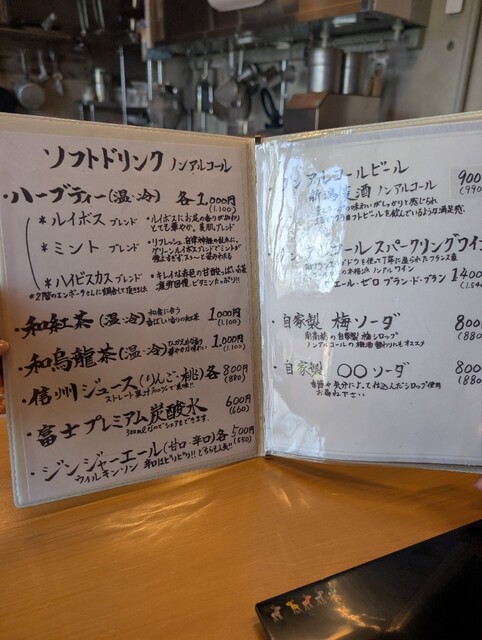 ソフトドリンク ノンアルコール
・ハーブティー(温・冷) 各1,000円
(1,100)
*ルイボス ブレンド
・ルイボスにお花の香りが加わり
とても華やか。美肌ブレンド
*ミント ブレンド
・リフレッシュ、自律神経の乱れに。
グリーンルイボスブレンドでミントが
*ハイビスカス ブレンド
・キレイな赤色の甘酸っぱいお茶
疲労回復・ビタミンたっぷり!!
・和紅茶(温・冷) 1,000円
(1,100)
香ばしい香りの紅茶
・和烏龍茶(温・冷) 1,000円
(1,100)
・信州ジュース(りんご・桃)各800円
(880)
ストレート果汁100%で美味!!
・富士プレミアム炭酸水 600円
(660)
320mlなのでシェアもできます。
・ジンジャーエール(甘口・辛口)各500円
(550)
ウィルキンソン 辛口はピリピリ!! どちらも人気!!
ノンアルコールビール 900
(990
ノンアルコール
味わいがしっかりと感じられ
ラフトビールを飲んでいるような満足感。
ール スパークリングワイン
ブドウを使って丁寧に造られたフランス産
ノンアルワイン
エール・ゼロ ブラン・ド・ブラン 1400
(1,54
・自家製 梅ソーダ 800
(880
の自家製 梅シロップ
ノンアルコールの梅酒 割りもオススメ
・自家製 〇〇ソーダ 800
(880
季節や気分によって仕込んだシロップ使用
お尋ね下さい